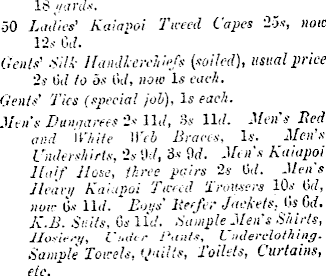 18 yards.
50 Ladies' Kaiapoi Tweed Capes 25s, now
12s 6d.
Gents' Silk Handkerchiefs (soiled), usual price
2s 6d to 5s 6d, now 1s each.
Gents' Ties (special job), 1s each.
Men's Dungarees 2s 11d, 3s 11d. Men's Red
and White Web Braces, 1s. Men's
Undershirts, 2s 9d, 3s 9d. Men's Kaiapoi
Half Hose, three pairs 2s 6d. Men's
Heavy Kaiapoi Tweed Trousers 10s 6d,
now 6s 11d. Boys' Reefer Jackets, 6s 6d.
K.B. Suits, 6s 11d. Sample Men's Shirts,
Hosiery, Under Pants, Underclothing.
Sample Towels, Quilts, Toilets, Curtains,
etc.